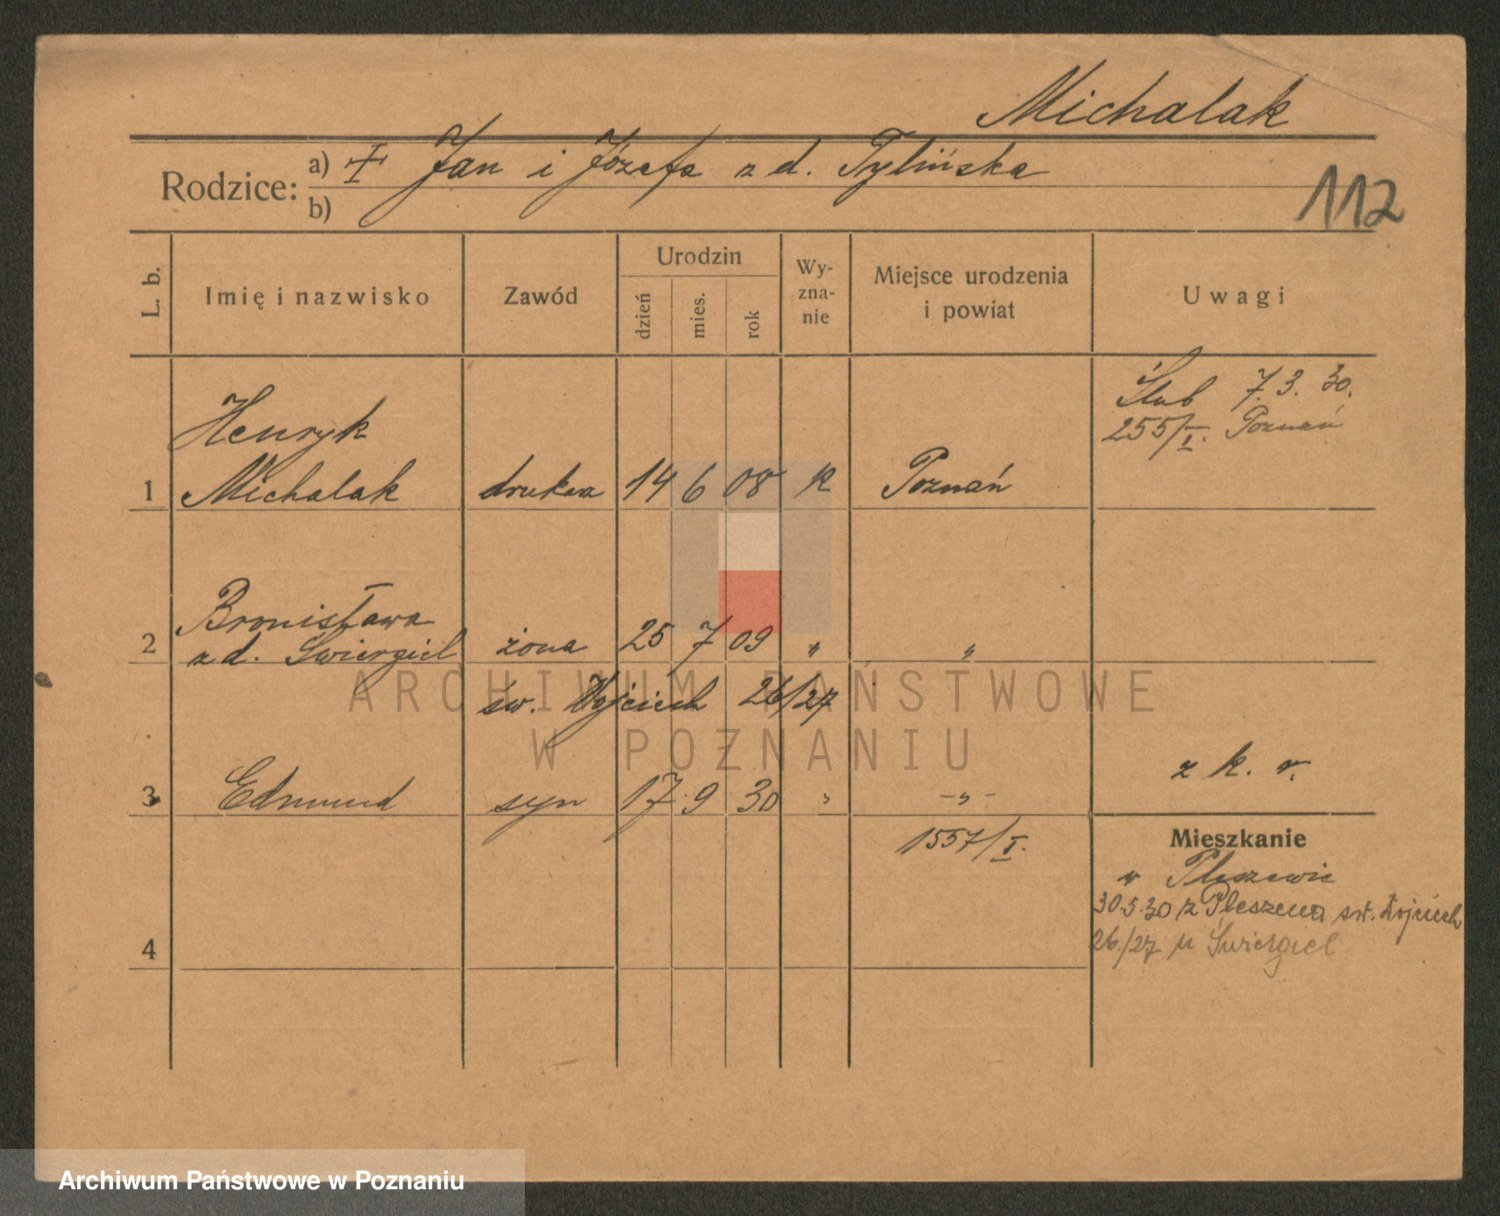 Michalak
Rodzice: a) Jan i Józefa z d. Tylińska
b)
112
L. b. Imię i nazwisko Zawód Urodzin dzień mies. rok Wy-zna-nie Miejsce urodzenia i powiat Uwagi
Ślub 7. 3. 30.
255/I. Poznań
Henryk
1 Michalak 14 6 08 Poznań
Bronisława
2 z d. Świergiel żona 25 7 09 „ „
św. Wojciech 26/27
z k. r.
3 Edmund syn 17 9 30 „ -„-
1557/I.
Mieszkanie
w Pleszewie
30.5.30 z Pleszewa św. Wojciech
26/27 u Świergiel
4
ARCHIWUM PAŃSTWOWE
W POZNANIU
Archiwum Państwowe w Poznaniu